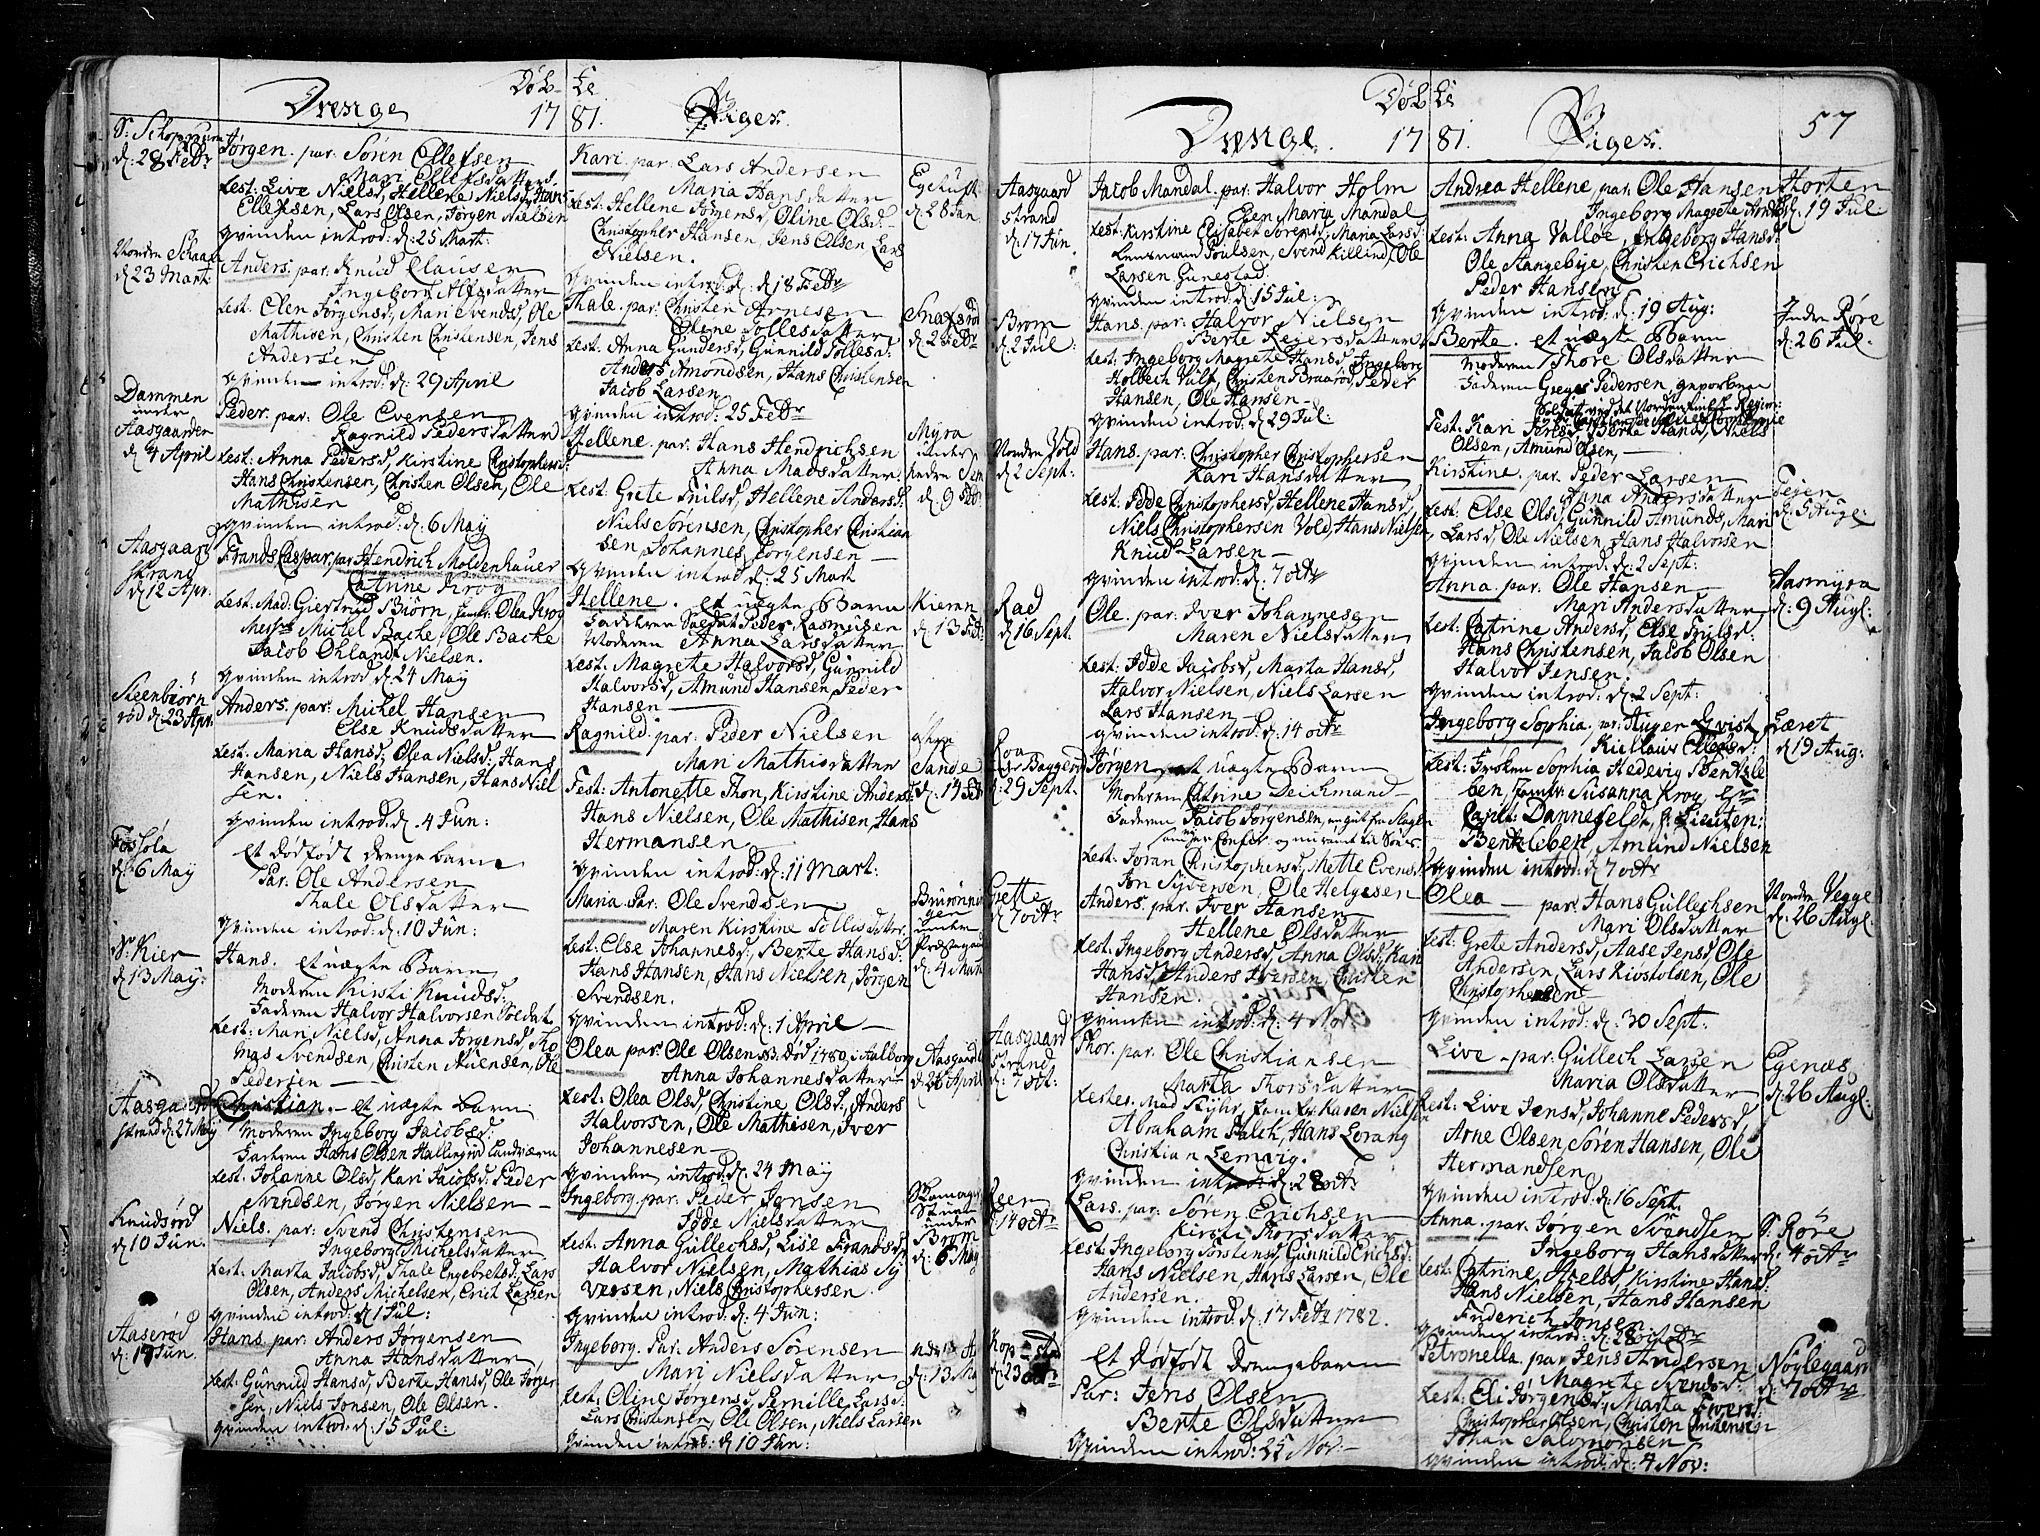 Døb- te
Drenge 17 81. Piger.
d: 28 Febr
Jørgen. par. Søren Ellefsen
Mari Ellefsdatter
test: Live Nielsd, Hellene Nielsd, Hans
Ellefsen, Lars Olsen, Jørgen Nielsen
qvinden introd: d: 25 Mart:
Nordre Schaan
d: 23 Mart:
Anders. par. Knud Clausen
Ingebord Alfsdatter
test. Elen Jørgensd, Mari Svends, Ole
Mathisen, Christen Christensen, Jens
Andersen
qvinden introd: d: 29 April
Dammen
under
Aasgaarden
d: 4 April
Peder. par: Ole Evensen
Ragnild Pedersdatter
test: Anna Pedersd, Kirstine Christophersd:
Hans Christensen, Christen Olsen, Ole
Mathisen
qvinden introd: d: 6 May
Aasgaard
strand
d: 12 Apr:
Frands Caspar. par Hendrich Moldenhauer
Catrine Krog
test: Mad: Giertrud Biørn, Jomfr: Olea Krog
Messrs Michel Backe, Ole Backe
Jacob Ohlandt Nielsen.
qvinden introd d: 24 May
Steenbiørn
rød d: 23 Apr:
Anders. par: Michel Hansen
Else Knudsdatter
test: Maria Hansd, Olea Nielsd, Hans
Hansen, Niels Hansen, Hans Niel
sen.
qvinden introd: d. 4 Jun:
d: 6 May
Et dødfødt drengebarn
Par: Ole Andersen
Thale Olsdatter
qvinden introd: d: 10 Jun:
Nr Kier
d: 13 May:
Hans. et uægte Barn
Moderen Kirsti Knudsd:
Faderen Halvor Halvorsen Soldat
test: Mari Nielsd, Anna Jørgensd, Tho
mas Svendsen, Christen Auensen, Ole
Pedersen
Aasgaard
strand d: 27 May
Christian. et uægte barn
Moderen Ingeborg Jacobsd:
Faderen Hans Olsen Hallingrød Landværn
test: Johanne Olsd, Kari Jacobsd: Peder
Svendsen, Jørgen Nielsen
Knudsrød
d: 10 Jun.
Niels. par: Svend Christensen
Ingeborg Michelsdatter
test: Marta Jacobsd, Thale Engebretsd, Lars
Olsen, Anders Michelsen, Erich Larsen
qvinden introd: d: 1 Jul:
Aaserød
d: 17 Jun.
Hans par: Anders Jørgensen
Anna Hansdatter
test: Gunnild Hansd, Berte Hansd, Ole Jørgen
sen, Niels Jonsen, Ole Olsen.
qvinden introd: d: 15 Jul:
Kari. par: Lars Andersen
Maria Hansdatter
test: Hellene Jørgensd, Oline Olsd:
Christopher Hansen, Jens Olsen, Lars
Nielsen.
qvinden introd: d: 18 Febr
d: 28 Jan.
Thale. par: Christen Arnesen
Elene Tollesdatter
test: Anna Gundersd, Gunnild Tollesd:
Anders Amondsen, Hans Christensen
Jacob Larsen
qvinden introd: 25 Febr
Snaxrød
d: 2 Febr
Hellene. par: Hans Hendrichsen
Anna Madsdatter
test: Grete Truilsd, Hellene Andersd:
Niels Sørensen, Christopher Christian
sen, Johannes Jørgensen
qvinden introd: d: 25 Mart
Myra
under
d: 9 Febr
Hellene. et uægte Barn
Faderen Soldat Peder Rasmusen
Moderen Anna Larsdatter
test: Magrete Halvorsd, Gunnild
Halvorsd, Amund Hansen, Peder
Hansen
Kieran
d: 13 Febr
Ragnild. par: Peder Nielsen
Mari Mathisdatter
Test: Antonette Thon, Kirstine Andersd:
Hans Nielsen, Ole Mathisen, Hans
Hermansen
qvinden introd: d: 11 Mart:
Sande
Maria. Par. Ole Svendsen
Maren Kirstine Tollisdatter
test: Else Johannesd, Berte Hansd:
Hans Hansen, Hans Nielsen, Jørgen
Svendsen.
qvinden introd: d: 1 April
under
Præstegaar
d: 4 Mart
Olea par: Ole Olsen død 1780 i Aalborg
Anna Johannesdatter
test: Olea Olsd, Christine Olsd, Anders
Halvorsen, Ole Mathisen, Iver
Johannesen
qvinden introd: d. 24 May
Ingeborg. par: Peder Jonsen
Idde Nielsdatter
test: Anna Gullechsd, Lise Frandsd,
Halvor Nielsen, Mathias Sy
versen, Niels Christophersen.
qvinden introd: d: 4 Jun:
under
Brom
d: 6 May
Ingeborg. Par. Anders Sørensen
Mari Nielsdatter
test: Oline Jørgensd, Pernille Larsd:
Lars Christensen, Ole Olsen, Niels Larsen
qvinden introd: d: 10 Jun:
Døb te
Drenge. 17 81. Piger. 57
Aasgaard
strand
d: 17 Jun.
Jacob Mandal. par: Halvor Holm
Elen Maria Mandal
test: Kirstine Elisabet Sørensd, Maria Larsd:
Lensmand Poulsen, Svend Killind, Ole
Larsen Gunestad.
qvinden introd: d. 15 Jul:
Brom
d: 2 Jul:
Hans. par: Halvor Nielsen
Berte Reiersdatter
test: Ingeborg Magrete Hansd, Ingeborg
Holbech Vulf, Christen Braarød, Peder
Hansen, Ole Hansen
qvinden introd: d. 29 Jul:
Nordre Vold
d: 2 Sept:
Hans. par: Christopher Christophersen
Kari Hansdatter
test: Idde Christophersd, Hellene Hansd,
Niels Christophersen Vold, Hans Nielsen
Knud Larsen
qvinden introd: d: 7 octr
Rad
d: 16 Sept.
Ole. par: Iver Johannesen
Maren Nielsdatter
test: Idde Jacobsd, Marta Hansd,
Halvor Nielsen, Niels Larsen
Lars Hansen
qvinden introd: d: 14 octr
d: 29 Sept.
Jørgen, et uægte Barn
Moderen Catrine Deichmand
Faderen Jacob Jørgensen,
test: Joran Christophersd, Mette Evensd
Jon Syversen, Ole Helgesen
Grette
d: 7 octr
Anders. par: Iver Hansen
Hellene Olsdatter
test: Ingeborg Andersd, Anna Olsd, Kari
Hansd, Anders Iversen, Christen
Hansen.
qvinden introd: d: 4 Nov:
Aasgaard
strand
d: 7 oct:
Thor. par: Ole Christiansen
Marta Thorsdatter
testes. Mad Styhr, Jomfr: Karen Nielsen
Abraham Falch, Hans Lorang
Christian Lemvig.
qvinden introd: d: 28 octr
d: 14 octr
Lars. par: Søren Erichsen
Kirsti Thorsdatter
test: Ingeborg Torstensd, Gunnild Erichsd:
Hans Nielsen, Hans Larsen, Ole
Andersen.
qvinden introd: d: 17 Febr 1782.
d: 23 octr
Et dødfødt Drengebarn
Par: Jens Olsen
Berte Olsdatter
qvinden introd: 25 Nov:
Andrea Hellene, par: Ole Hansen
Ingeborg Magrete
test: Anna Valløe, Ingeborg Hansd:
Ole Stangebye, Christen Erichsen
Peder Hanslev
qvinden introd: d: 19 Aug:
Horten
d: 19 Jul:
Berte. et uægte Barn
moderen Thore Olsdatter
Faderen Greger Pedersen,
Test: Kari Berte Hansd, Niels
Olsen, Amund Olsen,
Indre Røre
d: 26 Jul.
Kirstine. par. Peder Larsen
Anna Andersdatter
test: Else Olsd, Gunnild Amunds, Mari
Larsd, Ole Nielsen, Hans Halvorsen
qvinden introd: d: 2 Sept:
Feien
d: 5 Augl:
Anna. par. Ole Hansen
Mari Andersdatter
test: Catrine Andersd, Else Truilsd:
Hans Christensen, Jacob Olsen
Halvor Jensen.
qvinden introd: d. 2 Sept:
Aasmyra
d: 9 Augl:
Ingeborg Sophia, par: Auger Qvist
test: Frøken Sophia Hedevig Bentzle
ben, Jomfr: Susanna Krog
Capit: Dannefeldt, Lieuten:
Bentzleben, Amund Nielsen
qvinden introd: d: 7 octr
Læret
d: 19 Aug:
Olea par: Hans Gullechsen
Mari Olsdatter
test: Grete Andersd, Aase Jensd, Ole
Andersen, Lars Kiostolsen, Ole
Christophersen
qvinden introd: d: 30 Sept.
Nordre Vegge
d: 26 Augl.
Live par: Gullech Larsen
Maria Olsdatter
test: Live Jensd, Johanne Pedersd,
Arne Olsen, Søren Hansen, Ole
Hermandsen
qvinden introd: d: 16 Sept.
Egenæs
d: 26 Augl:
Anna. par: Jørgen Svendsen
Ingeborg Hansdatter
test: Catrine Nielsd, Kirstine Hansd:
Hans Nielsen, Hans Hansen
Friderich Jonsen
qvinden introd: d: 28 octr
S. Røre
d: 4 octr
Petronella. par: Jens Andersen
Magrete Svendsd:
test: Eli Jørgensd, Marta Iversd:
Christopher Olsen, Christen Christensen
Johan Salomonsen
qvinden introd: d: 4 Nov:
Nøglegaard
d: 7 octr